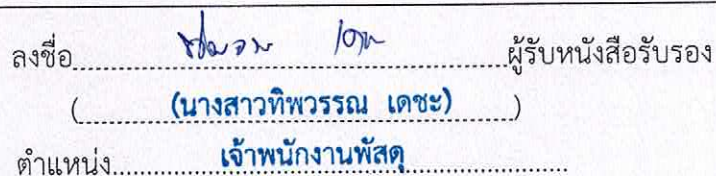 ลงชื่อ ผู้รับหนังสือรับรอง
( (นางสาวทิพวรรณ เดชะ) )
ตำแหน่ง เจ้าพนักงานพัสดุ